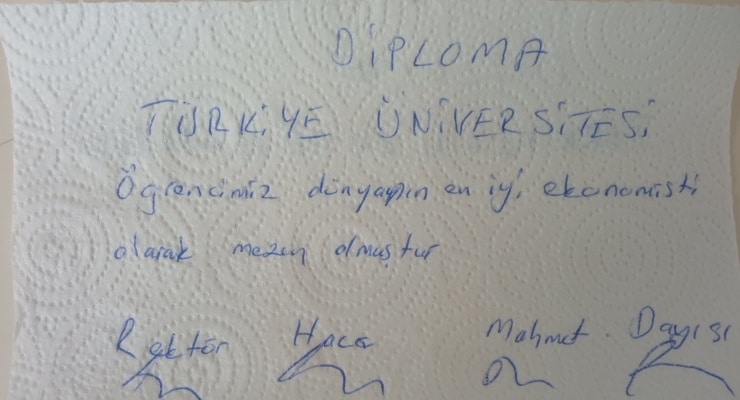 DİPLOMA
TÜRKİYE ÜNİVERSİTESİ
Öğrencimiz dünyanın en iyi ekonomisti
olarak mezun olmuştur
Rektör Hoca Mahmut. Dayısı